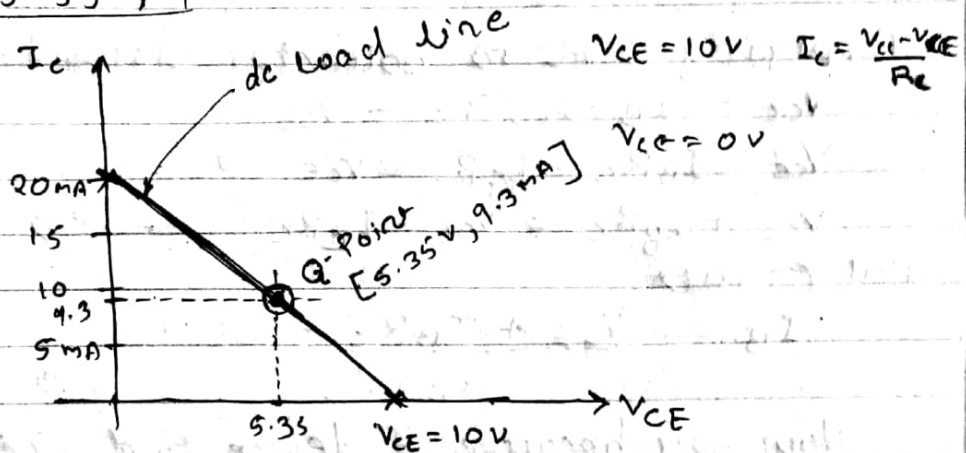 I_C
dc Load line
V_CE = 10 V
I_C = (V_CC - V_CE) / R_C
V_CE = 0 V
20 mA
15
Q-Point
[5.35 V, 9.3 mA]
10
9.3
5 mA
5.35
V_CE = 10 V
V_CE